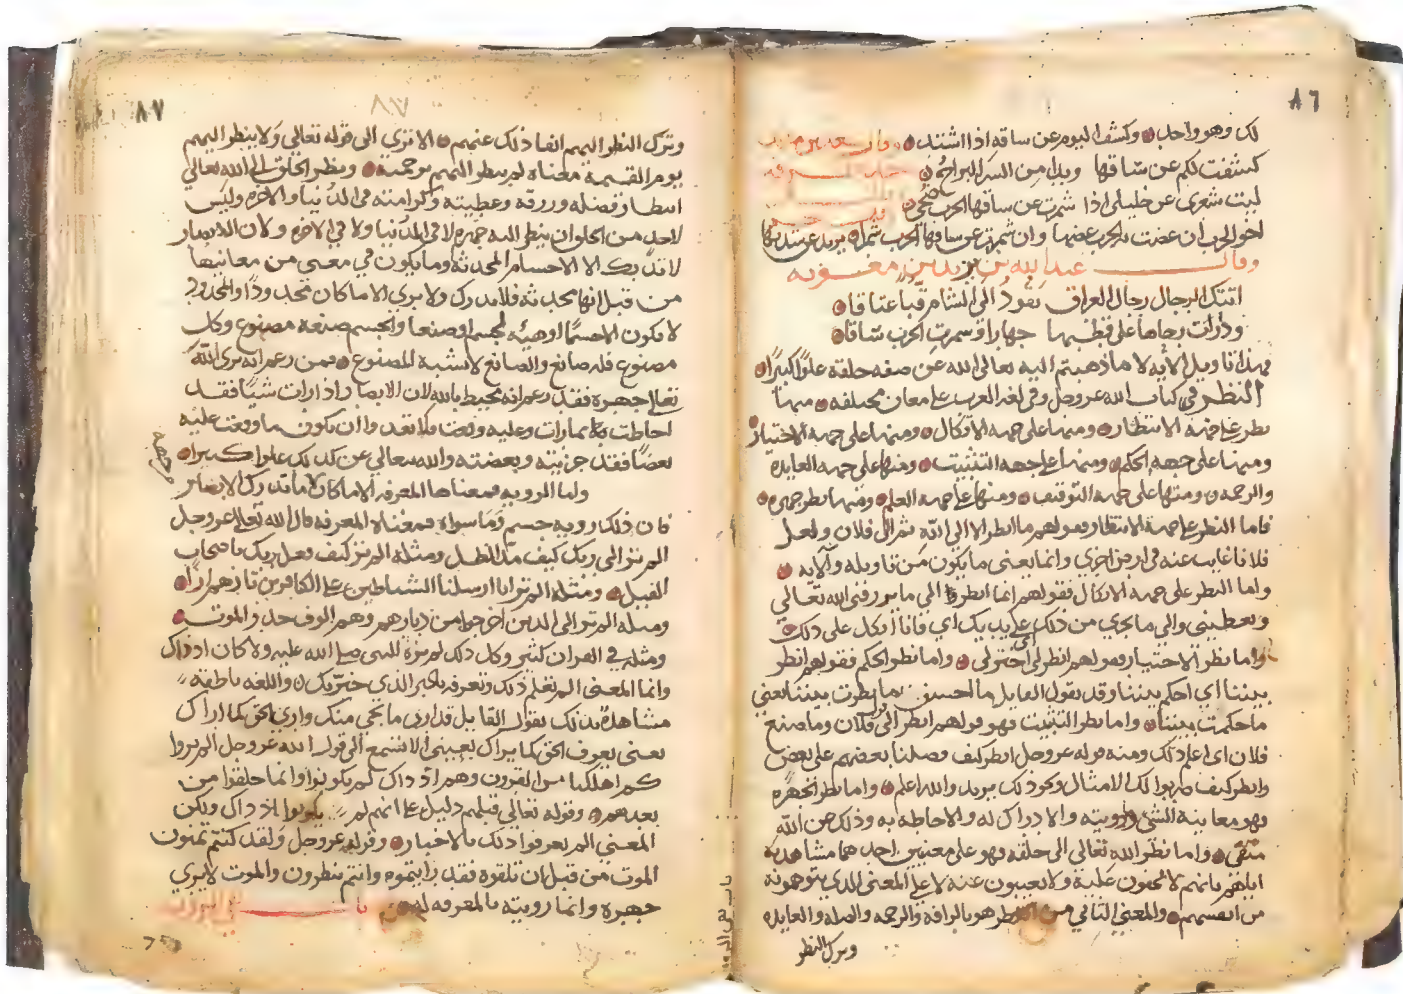 ٨٦
لك وهو واحد وكشف اليوم عن ساقه اذا اشتد وقال سعد بن
كشفت لكم عن ساقها وبدا من الشر البراح
ليت شعري عن خليلي اذا شمرت عن ساقها الحرب
اخو الحرب ان عضت به الحرب عضها وان شمرت عن ساقها الحرب شمرا يريد عن شدتها
وقال عبد الله بن يزيد بن معوية
اتتك الرجال رجال العراق تقود الى الشام قبا عتاقا
ودارت رحاها على قطبها جهارا وشمرت الحرب ساقا
فهذا تاويل الايه لا ما ذهبتم اليه تعالى الله عن صفه خلقه علوا كبيرا
النظر في كتاب الله عز وجل وفي لغه العرب على معان مختلفه منها
نظر على جهة الانتظار ومنها على جهة الاتكال ومنها على جهه الاختيار
ومنها على جهه الحكم ومنها على جهه التثبيت ومنها على جهه العايده
والرحمه ومنها على جهة التوقيف ومنها على جهة العلم ومنها نظر جهره
فاما النظر على جهة الانتظار فقولهم ما انظر الا الى الله ثم الى فلان ولعل
فلانا غايب عنه في ارض اخري وانما يعني ما يكون من تاويله وآلايه
واما النظر على جهة الاتكال فقولهم انما انظر الى ما يرزقني الله تعالى
ويعطيني والى ما يجري من ذلك على يديك اي فانا اتكل على ذلك
واما نظر الاختيار فقولهم انظر لي اي اختر لي واما نظر الحكم فقولهم انظر
بيننا اي احكم بيننا وقد يقول القايل ما احسن ما نظرت بيننا يعني
ما حكمت بيننا واما نظر التثبيت فهو قولهم انظر الى فلان وما صنع
فلان اي اعلم ذلك ومنه قوله عز وجل انظر كيف فضلنا بعضهم على بعض
وانظر كيف ضربوا لك الامثال ونحو ذلك يريد والله اعلم واما نظر الجهره
فهو معاينة الشي ورويته والادراك له والاحاطة به وذلك عن الله
منفي واما نظر الله تعالى الى خلقه فهو على معنيين احدهما مشاهدته
اياهم بانهم لا يخفون عليه ولا يغيبون عنه لا على المعنى الذي يتوهمونه
من انفسهم والمعنى الثاني من النظر هو بالرافة والرحمه والصله والعايده
وترك النظر
٨٧
وترك النظر اليهم انفاذ ذلك عنهم الا ترى الى قوله تعالى ولا ينظر اليهم
يوم القيمة معناه لم ينظر اليهم برحمته ونظر الخلق الى الله تعالى
انتظار فضله ورزقه وعطيته وكرامته في الدنيا والاخره وليس
لاحد من الخلق ان ينظر اليه جهره لا في الدنيا ولا في الاخره ولان الابصار
لا تدرك الا الاجسام المحدثة وما يكون في معنى من معانيها
من قبل انها محدثة فلا تدرك ولا يرى الا ما كان محدودا والمحدود
لا يكون الا جسما او هيئه لجسم او صنعا والجسم صنعة مصنوع وكل
مصنوع فله صانع والصانع لا يشبه المصنوع فمن زعم انه يرى الله
تعالى جهره فقد زعم انه يحيط بالله لان الابصار اذا رات شيا فقد
احاطت بما رات وعليه وقعت فلا تعدوا ان يكون ما وقعت عليه
بعضا فقد جزيته وبعضته والله تعالى عن كل ذلك علوا كبيرا
واما الرويه فمعناها المعرفه الا ما كان مما تدرك الابصار
فان ذلك رويه جسم وما سواه فمعناه المعرفه قال الله تعالى عز وجل
الم تر الى ربك كيف مد الظل ومثله الم تر كيف فعل ربك باصحاب
الفيل ومثله الم تر انا ارسلنا الشياطين على الكافرين تازهم ازا
ومثله الم تر الى الذين اخرجوا من ديارهم وهم الوف حذر الموت
ومثله في القران كثير وكل ذلك لم يره النبي صلى الله عليه ولا كان اذ ذاك
وانما المعنى الم تعلم ذلك وتعرفه بالخبر الذي خبرتك واللغه ناطقة
مشاهدة بذلك يقول القايل قد ارى ما تخفي منك وارى الحق كما اراك
يعني يعرف الحق كما يراك بعينيه الا تسمع الى قول الله عز وجل الم يروا
كم اهلكنا من القرون وهم اذ ذاك لم يكونوا وانما خلقوا من
بعدهم وقوله تعالى قبلهم دليل على انهم لم يكونوا اذ ذاك ولكن
المعنى الم يعرفوا ذلك بالاخبار وقوله عز وجل ولقد كنتم تمنون
الموت من قبل ان تلقوه فقد رايتموه وانتم تنظرون والموت لا يرى
جهره وانما رويته بالمعرفه له باب